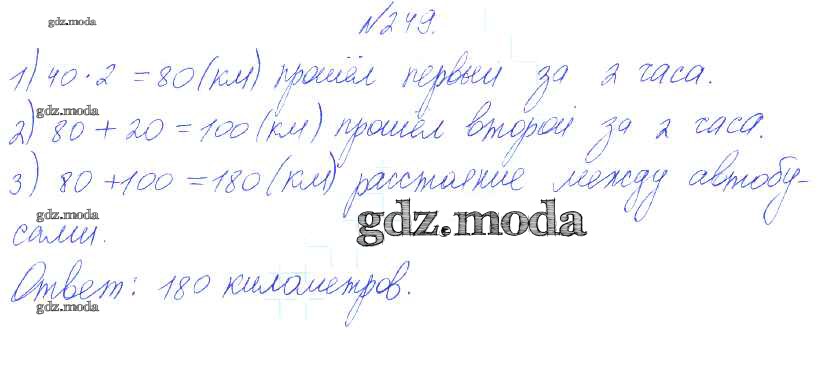 gdz.moda
№249.
1) 40·2 = 80 (км) прошёл первый за 2 часа.
gdz.moda
2) 80 + 20 = 100 (км) прошёл второй за 2 часа.
3) 80 + 100 = 180 (км) расстояние между автобу-
gdz.moda
gdz.moda
сами.
Ответ: 180 километров.
gdz.moda